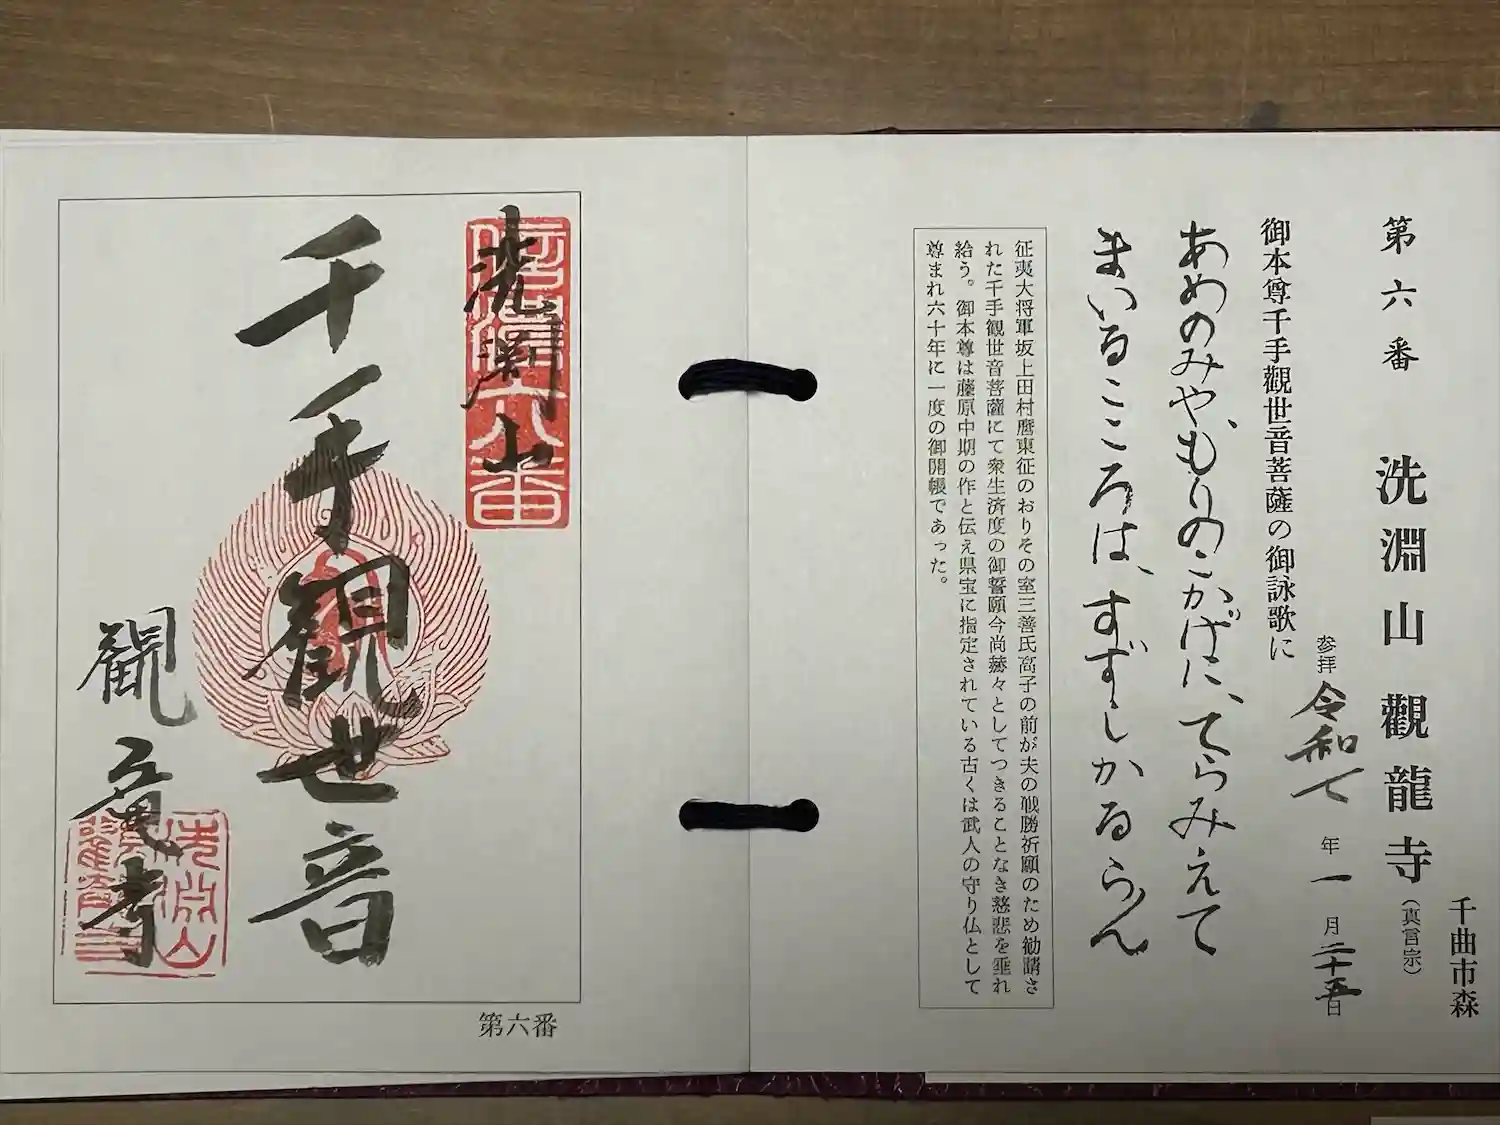 千曲市森
第六番 洗淵山 觀龍寺 (真言宗)
参拝 令和七年一月二十五日
御本尊千手觀世音菩薩の御詠歌に
あめのみや、もりのこかげに、てらみえて
まいるこころは、すずしかるらん
征夷大将軍坂上田村麿東征のおりその室三善氏高子の前が夫の戦勝祈願のため勧請さ
れた千手観世音菩薩にて衆生済度の御誓願今尚赫々としてつきることなき慈悲を垂れ
給う。御本尊は藤原中期の作と伝え県宝に指定されている古くは武人の守り仏として
尊まれ六十年に一度の御開帳であった。
信濃六番
洗渕山
千手観世音
観竜寺
洗淵山
第六番